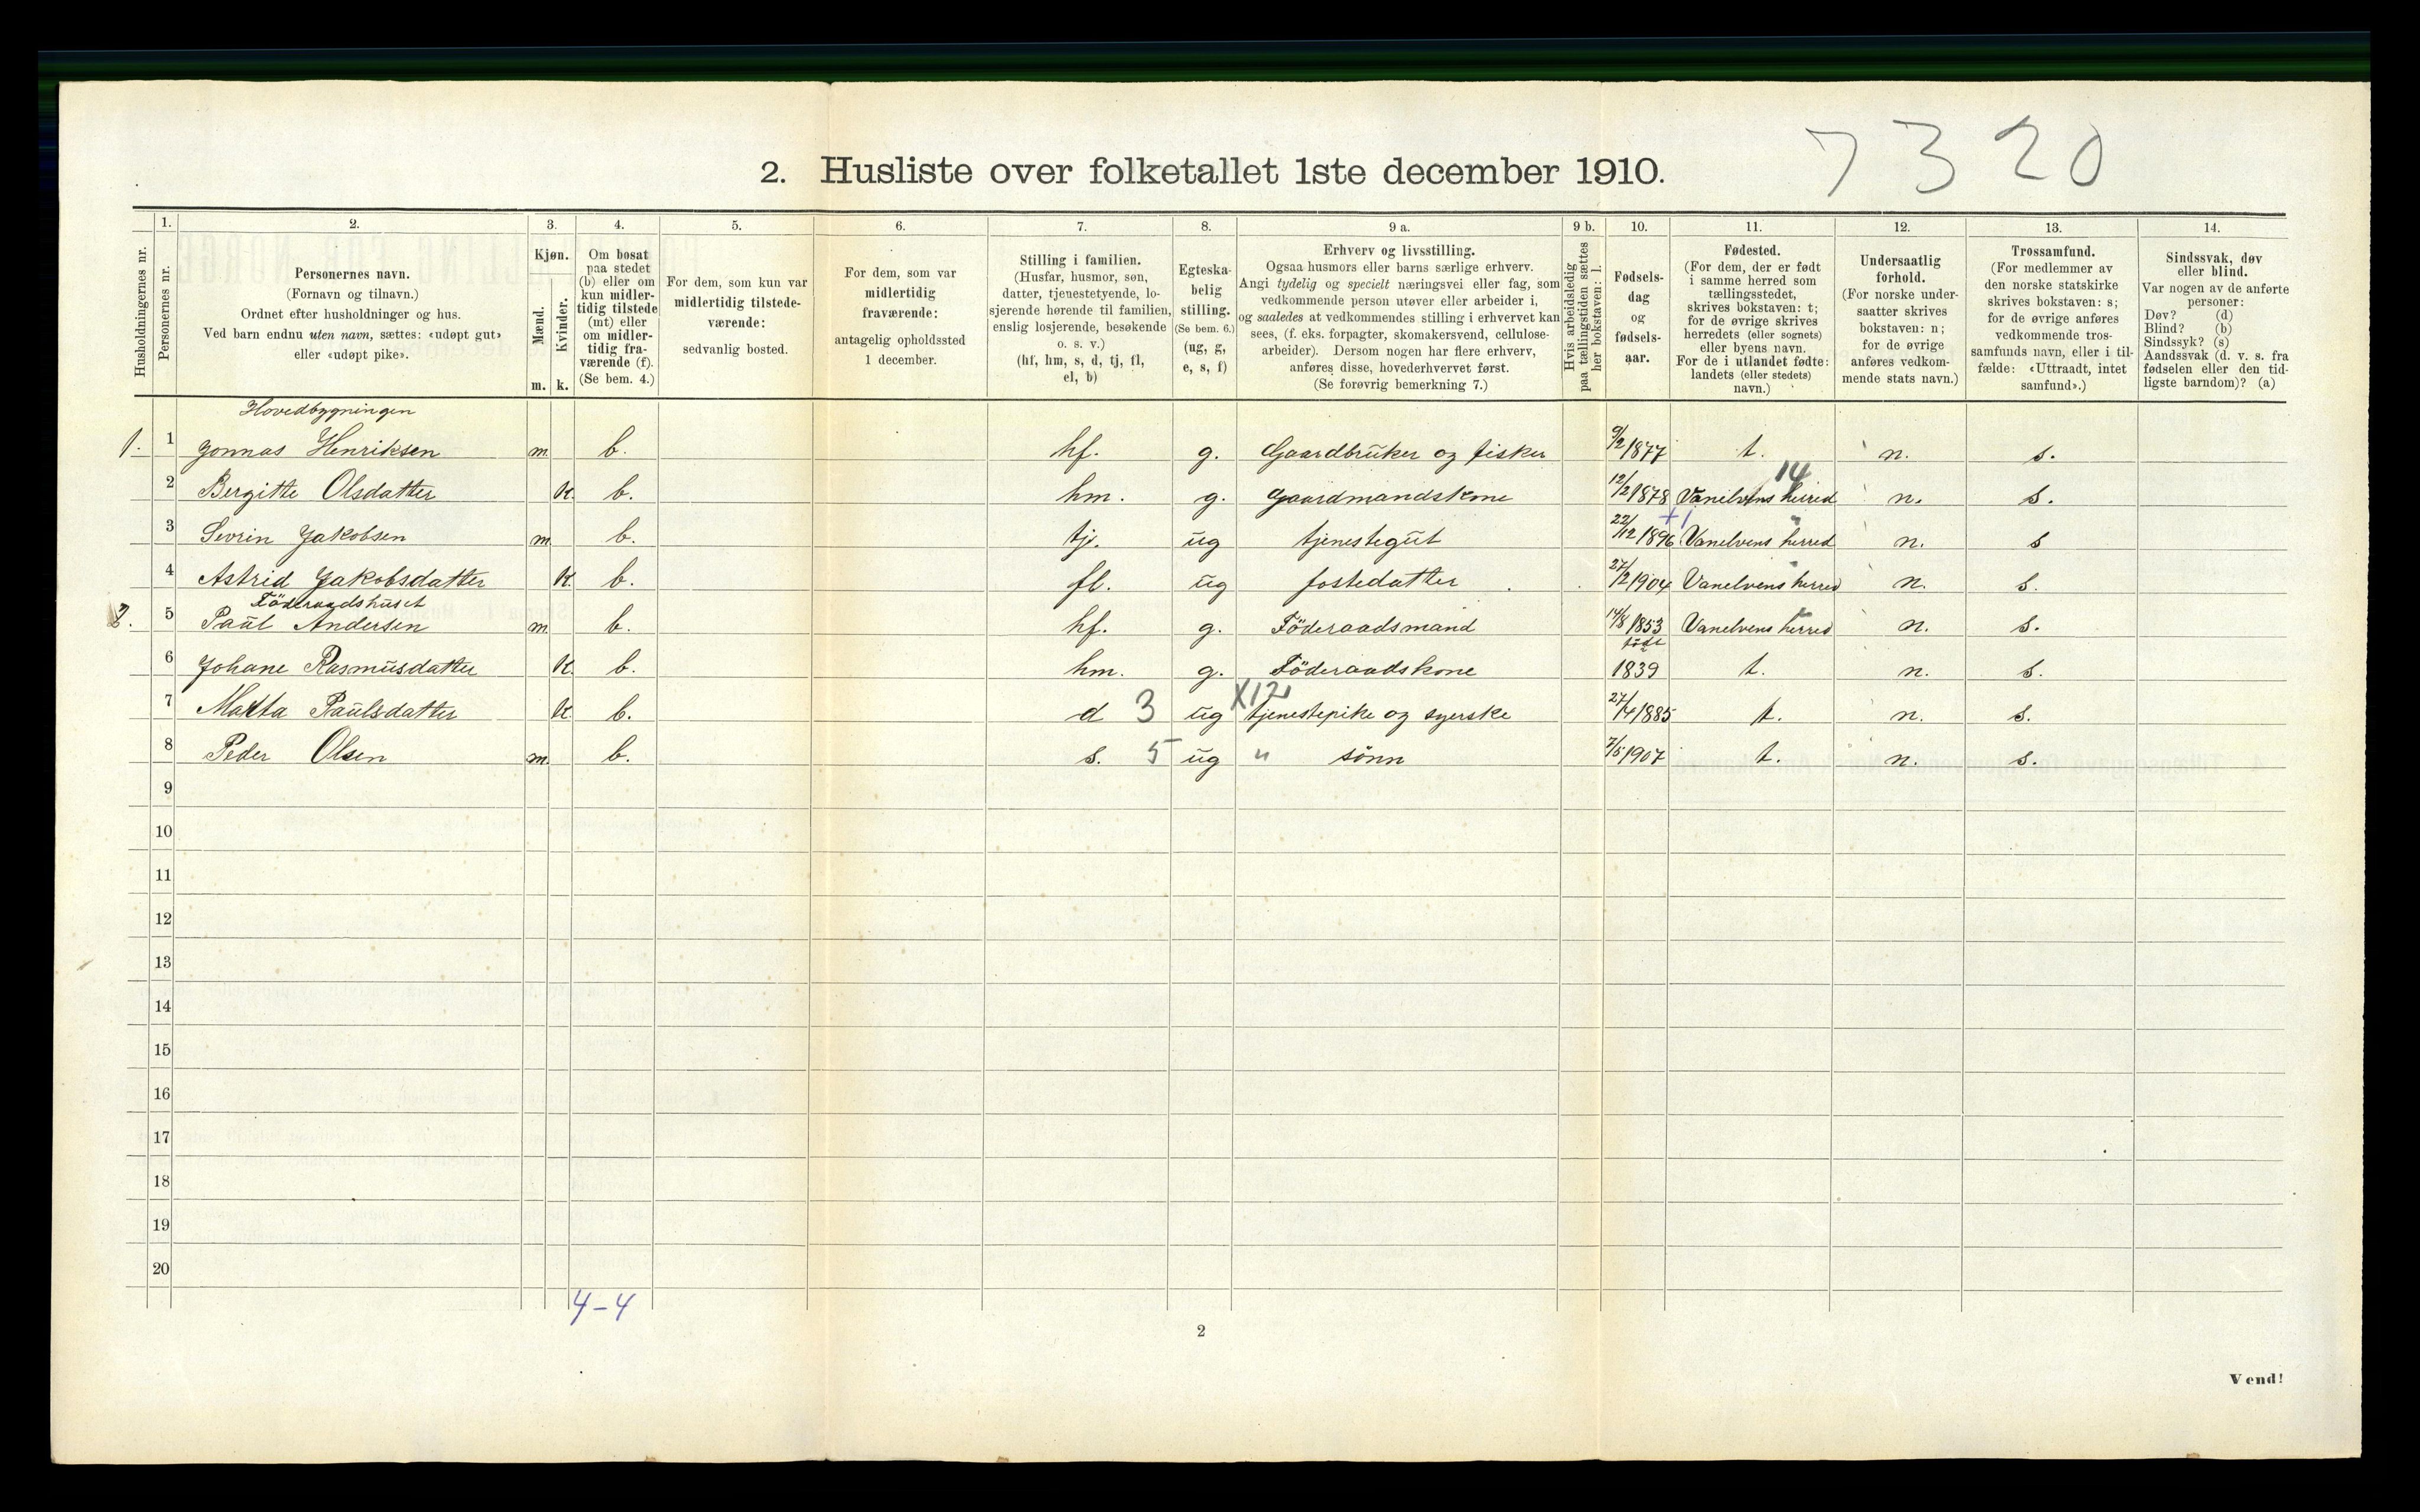 7320
2. Husliste over folketallet 1ste december 1910.
Husholdningernes nr.
1.
Personernes nr.
2.
Personernes navn.
(Fornavn og tilnavn.)
Ordnet efter husholdninger og hus.
Ved barn endnu uten navn, sættes: «udøpt gut»
eller «udøpt pike».
3.
Kjøn.
Mænd.
Kvinder.
m. k.
4.
Om bosat
paa stedet
(b) eller om
kun midler-
tidig tilstede
(mt) eller
om midler-
tidig fra-
værende (f).
(Se bem. 4.)
5.
For dem, som kun var
midlertidig tilstede-
værende:
sedvanlig bosted.
6.
For dem, som var
midlertidig
fraværende:
antagelig opholdssted
1 december.
7.
Stilling i familien.
(Husfar, husmor, søn,
datter, tjenestetyende, lo-
sjerende hørende til familien,
enslig losjerende, besøkende
o. s. v.)
(hf, hm, s, d, tj, fl,
el, b)
8.
Egteska-
belig
stilling.
(Se bem. 6.)
(ug, g,
e, s, f)
9 a.
Erhverv og livsstilling.
Ogsaa husmors eller barns særlige erhverv.
Angi tydelig og specielt næringsvei eller fag, som
vedkommende person utøver eller arbeider i,
og saaledes at vedkommendes stilling i erhvervet kan
sees, (f. eks. forpagter, skomakersvend, cellulose-
arbeider). Dersom nogen har flere erhverv,
anføres disse, hovederhvervet først.
(Se forøvrig bemerkning 7.)
9 b.
Hvis arbeidsledig
paa tællingstiden sættes
her bokstaven: l.
10.
Fødsels-
dag
og
fødsels-
aar.
11.
Fødested.
(For dem, der er født
i samme herred som
tællingsstedet,
skrives bokstaven: t;
for de øvrige skrives
herredets (eller sognets)
eller byens navn.
For de i utlandet fødte:
landets (eller stedets)
navn.)
12.
Undersaatlig
forhold.
(For norske under-
saatter skrives
bokstaven: n;
for de øvrige
anføres vedkom-
mende stats navn.)
13.
Trossamfund.
(For medlemmer av
den norske statskirke
skrives bokstaven: s;
for de øvrige anføres
vedkommende tros-
samfunds navn, eller i til-
fælde: «Uttraadt, intet
samfund».)
14.
Sindssvak, døv
eller blind.
Var nogen av de anførte
personer:
Døv? (d)
Blind? (b)
Sindssyk? (s)
Aandssvak (d. v. s. fra
fødselen eller den tid-
ligste barndom)? (a)
Hovedbygningen
1. 1 Jonnas Henriksen m. b. hf. g. Gaardbruker og fisker 9/2 1877 t. n. s.
14
2 Bergitte Olsdatter k. b. hm. g. Gaardmandskone 12/2 1878 Vanelvens herred n. s.
+1
3 Sevrin Jakobsen m. b. tj. ug tjenestegut 22/12 1896 Vanelvens herred n. s
4 Astrid Jakobsdatter k. b. fl. ug fostedatter 27/2 1904 Vanelvens herred n. s.
Föderaadshuset
2. 5 Paul Andersen m. b. hf. g. Föderaadsmand 14/8 1853 Vanelvens herred n. s.
6 Johane Rasmusdatter k. b. hm. g. Föderaadskone 1839 t. n. s.
X12
7 Marta Paulsdatter k. b. d 3 ug tjenestepike og syerske 27/4 1885 t. n. s.
8 Peder Olsen m. b. s. 5 ug " sönn 7/5 1907 t. n. s.
9
10
11
12
13
14
15
16
17
18
19
20
4-4
2
Vend!